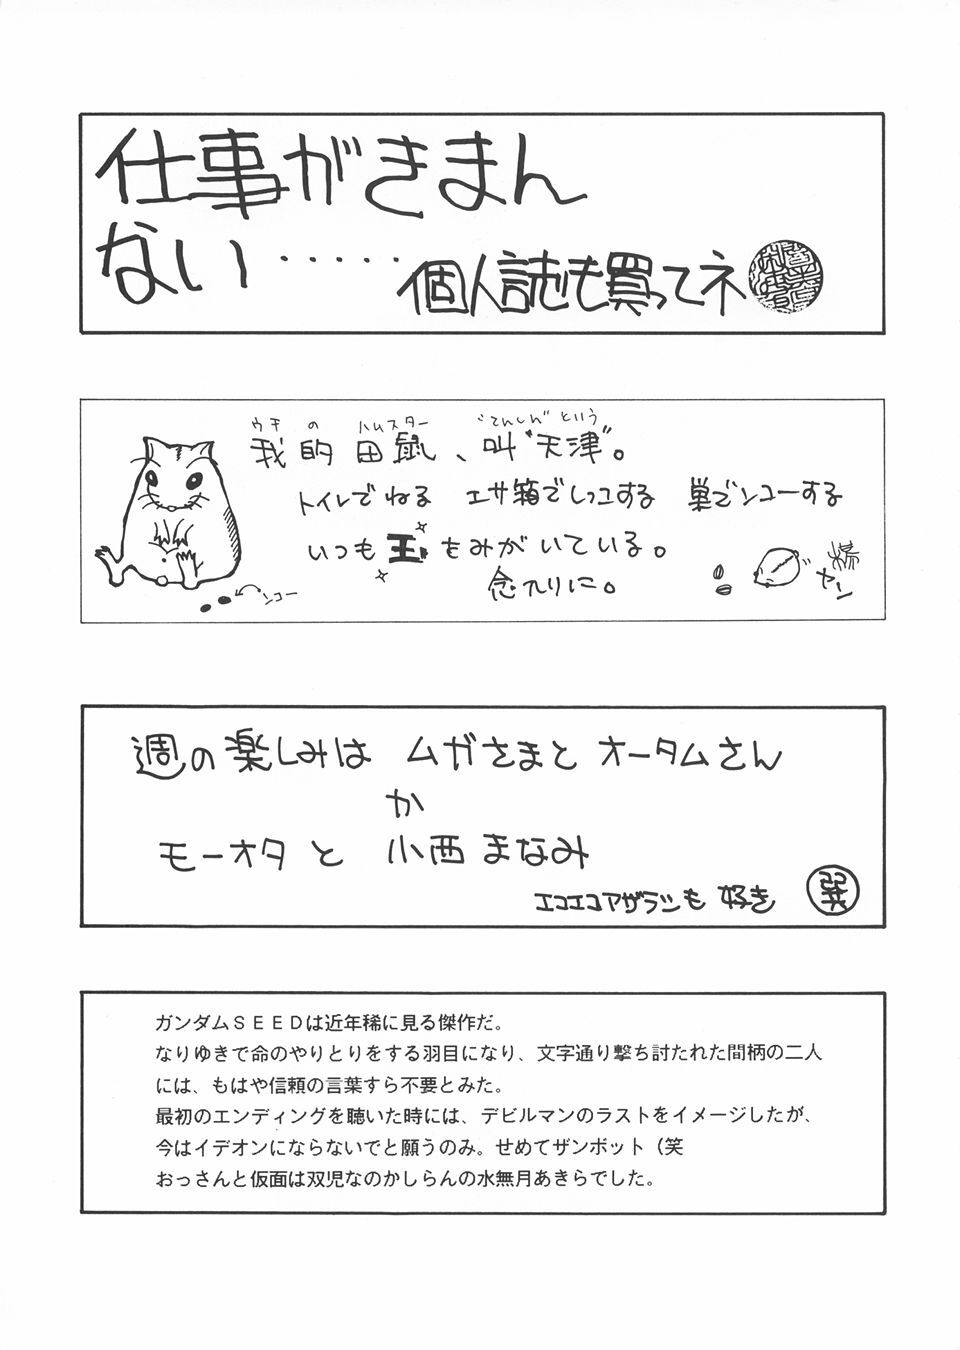 仕事がきまん
ない‥‥‥個人誌も買ってネ
ウチ の ハムスター "てんしん"という
我的田鼠、叫"天津"。
トイレでねる エサ箱でしっコする 巣でンコーする
いつも玉をみがいている。
念入りに。
ンコー
ヤーン
週の楽しみは ムガさまと オータムさん
か
モーオタ と 小西 まなみ
エコエコアザラシも 好き
巽
ガンダムSEEDは近年稀に見る傑作だ。
なりゆきで命のやりとりをする羽目になり、文字通り撃ち討たれた間柄の二人
には、もはや信頼の言葉すら不要とみた。
最初のエンディングを聴いた時には、デビルマンのラストをイメージしたが、
今はイデオンにならないでと願うのみ。せめてザンボット(笑
おっさんと仮面は双児なのかしらんの水無月あきらでした。